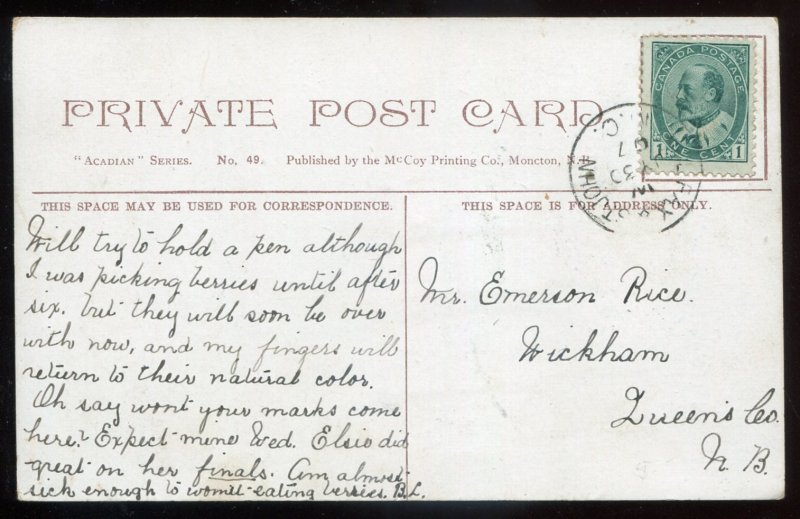 CANADA POSTAGE
1 ONE CENT 1
PRIVATE POST CARD
"ACADIAN" SERIES. No. 49. Published by the McCoy Printing Co., Moncton, N.B.
THIS SPACE MAY BE USED FOR CORRESPONDENCE.
THIS SPACE IS FOR ADDRESS ONLY.
Will try to hold a pen although
I was picking berries until after
six. but they will soon be over
with now, and my fingers will
return to their natural color.
Oh say wont your marks come
here? Expect mine Wed. Elsie did
great on her finals. Am almost
sick enough to vomit-eating berries. B.L.
Mr. Emerson Rice.
Wickham
Queen's Co.
N. B.